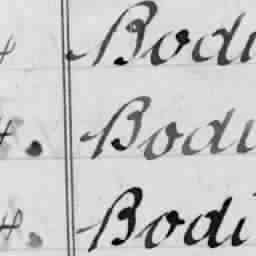 4 Bodi
4. Bodi
4. Bodi